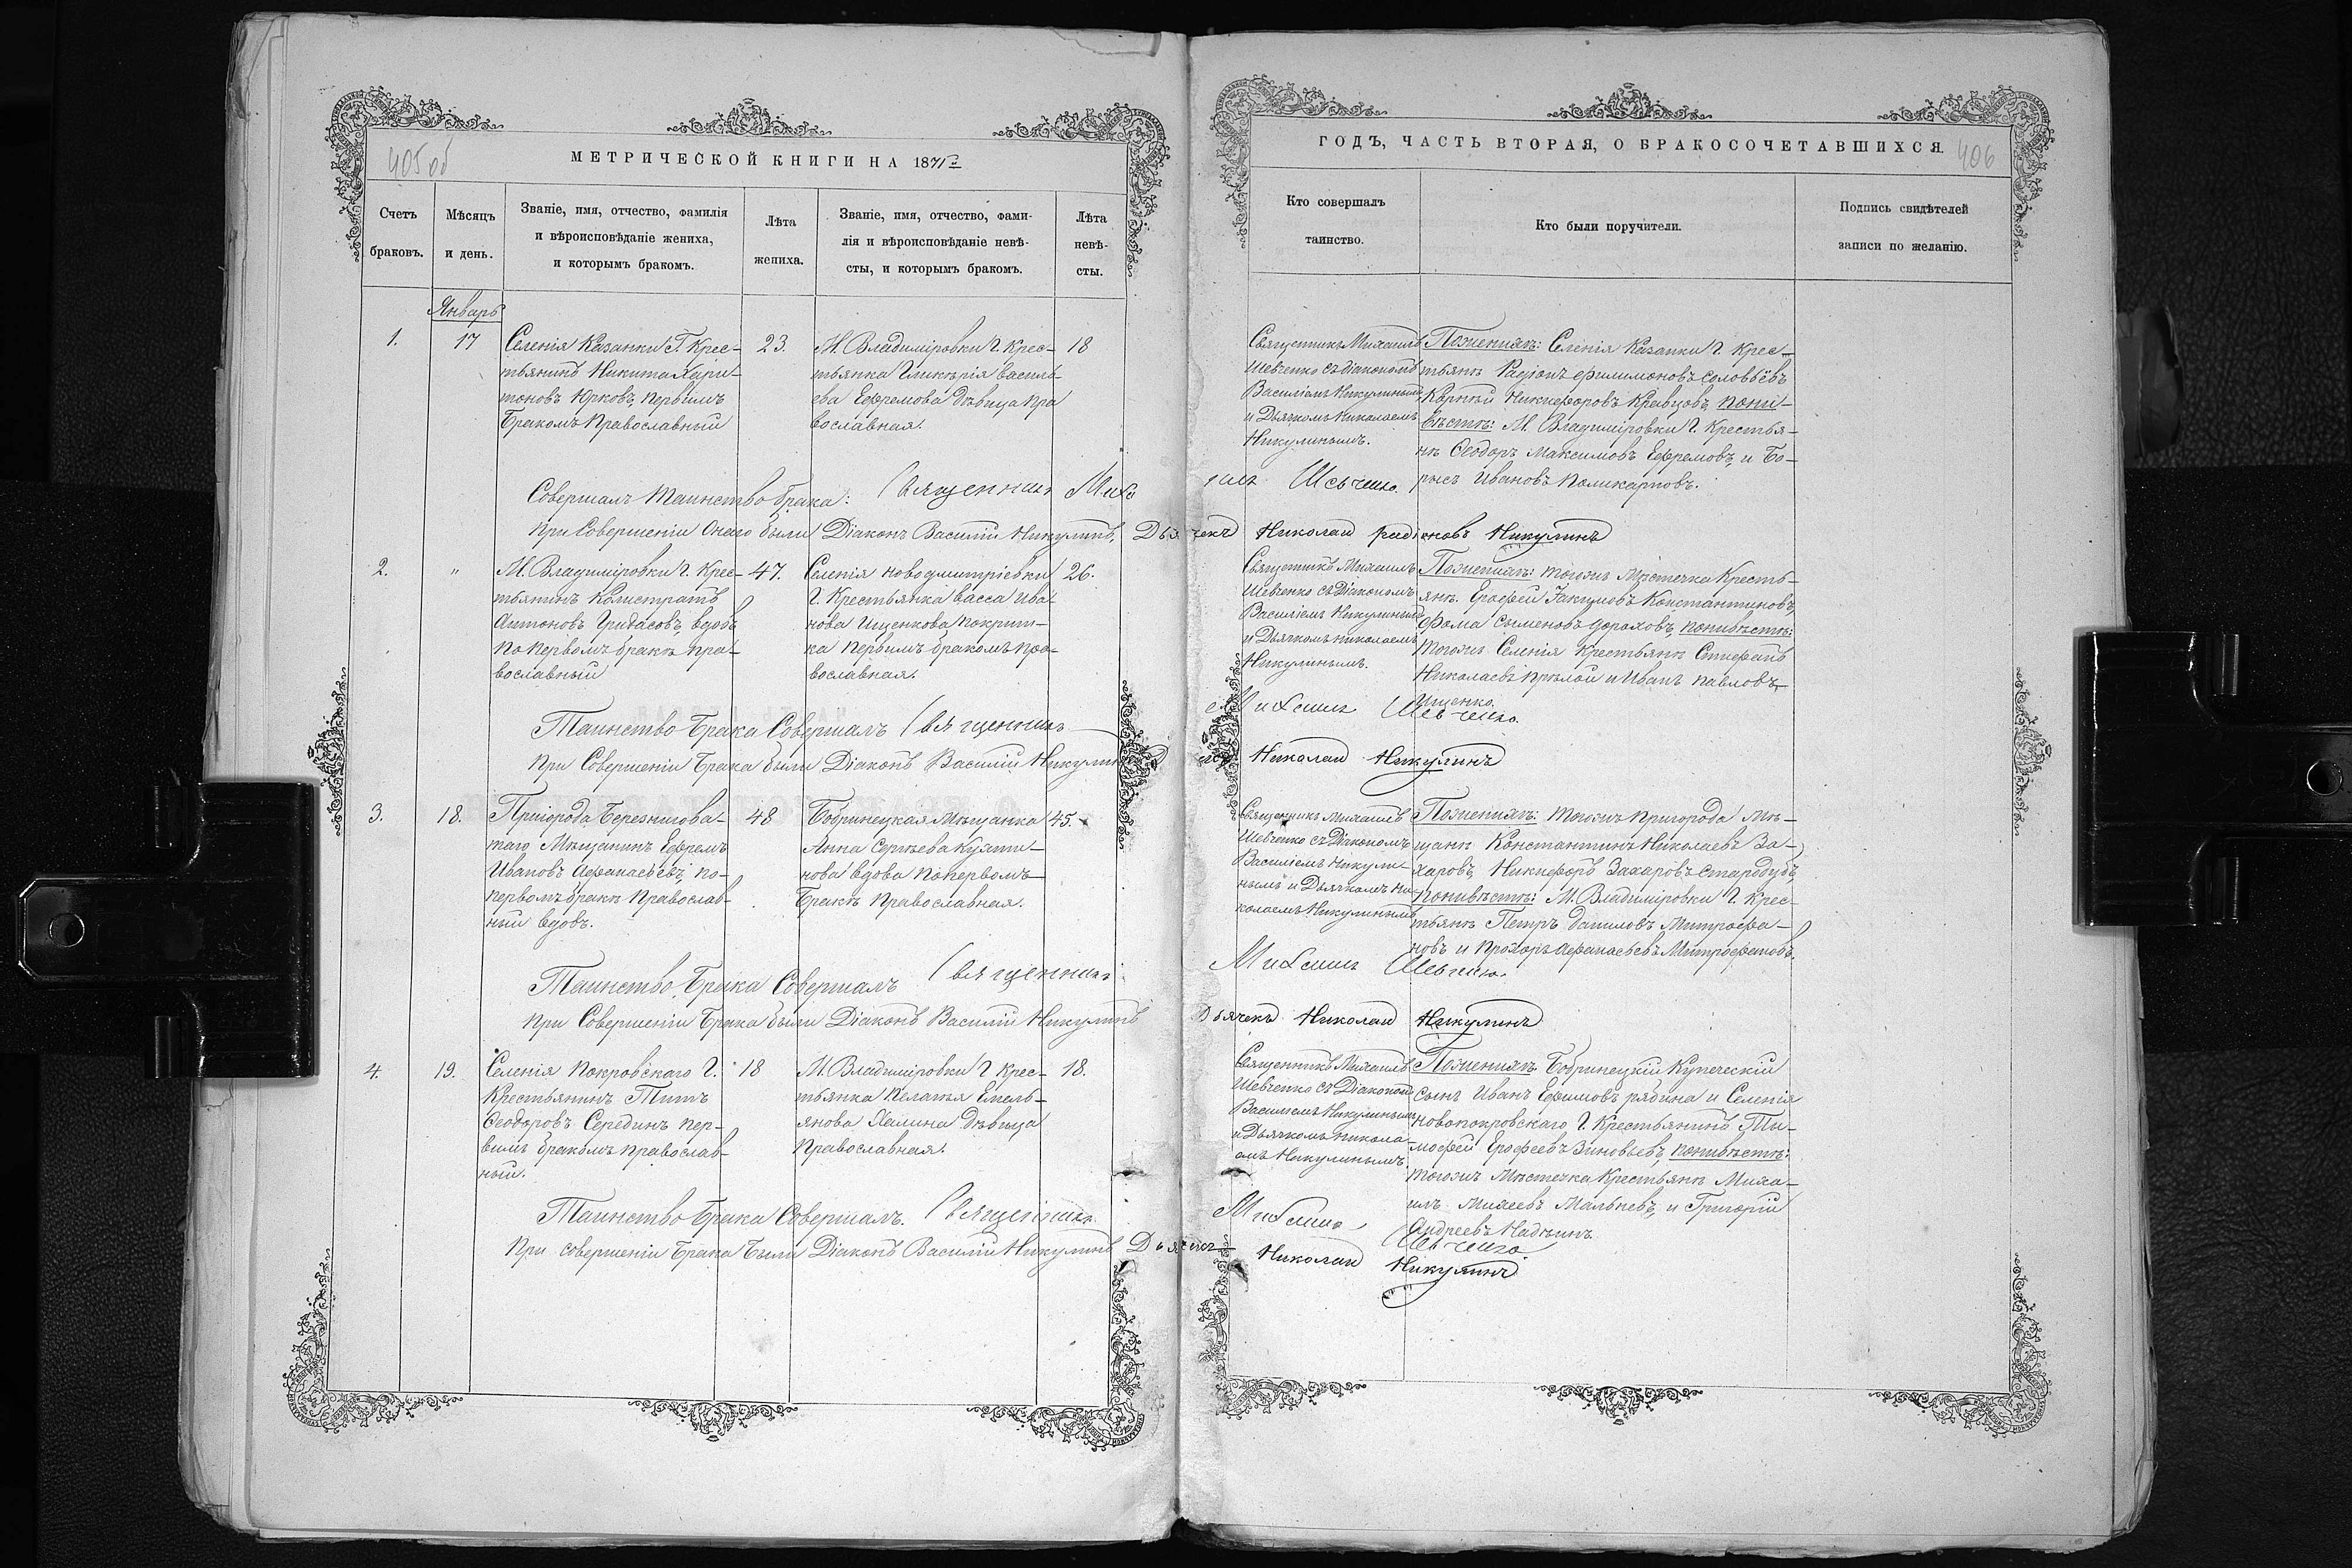 405 об
МЕТРИЧЕСКОЙ КНИГИ НА 1871й
Счетъ браковъ.
Мѣсяцъ и день.
Званіе, имя, отчество, фамилія
и вѣроисповѣданіе жениха,
и которымъ бракомъ.
Лѣта жениха.
Званіе, имя, отчество, фами-
лія и вѣроисповѣданіе невѣ-
сты, и которымъ бракомъ.
Лѣта невѣ-
сты.
ГОДЪ, ЧАСТЬ ВТОРАЯ, О БРАКОСОЧЕТАВШИХСЯ.
406
Кто совершалъ
таинство.
Кто были поручители.
Подпись свидѣтелей
записи по желанію.
Январь
1.
17
Селенія Казанки Г. Крес-
тьянинъ Никита Хари-
тоновъ Юрковъ, первымъ
Бракомъ Православный
23.
М. Владиміровки Г. Крес-
тьянка Гликерія Василь-
ева Ефремова дѣвица Пра
вославная.
18
Священникъ Михаилъ
Шевченко съ діакономъ
Василіемъ Никулинымъ
и Дьячкомъ Николаемъ
Никулинымъ.
Поженихѣ: Селенія Казанки Г. Крес-
тьяне Радіонъ Филимоновъ Соловьёвъ
Корней Никифоровъ Кравцовъ, поне-
вѣстѣ: М. Владиміровки Г. Крестья-
не Ѳеодоръ Максимовъ Ефремовъ, и Бо-
рисъ Ивановъ Поликарповъ.
Совершалъ Таинство брака: Священникъ Михаилъ Шевченко.
при Совершеніи Онаго были Діаконъ Василій Никулинъ, Дьячекъ Николай Никулинъ
2.
"
М. Владиміровки Г. Крес-
тьянинъ Калистратъ
Антоновъ Гридасовъ, вдовъ
по первомъ бракѣ пра-
вославный
47.
Селенія Новодмитріевки
Г. Крестьянка Васса Ива-
нова Ищенкова покрит-
ка первымъ бракомъ пра-
вославная.
26.
Священникъ Михаилъ
Шевченко съ Діакономъ
Василіемъ Никулинымъ
и Дьячкомъ Николаемъ
Никулинымъ.
Поженихѣ: тогожъ Мѣстечка Кресть-
яне Ерофей Константиновъ,
Фома Дороховъ, поневѣстѣ:
тогожъ Селенія Крестьяне Стефанъ
Николаевъ и Иванъ Павловъ
Ищенко.
Таинство Брака Совершалъ Священникъ Михаилъ Шевченко.
При Совершеніи Брака были Діаконъ Василій Никулинъ Николай Никулинъ
3.
18.
Пригорода Березнигова-
таго Мѣщанинъ Ефремъ
Ивановъ Афанасьевъ, по-
первомъ бракѣ Православ-
ный вдовъ.
48
Бобринецкая Мѣщанка
Анна Сергѣева
нова вдова попервомъ
Бракѣ Православная.
45.
Священникъ Михаилъ
Шевченко съ Діакономъ
Василіемъ Никули-
нымъ и Дьячкомъ Ни-
колаемъ Никулинымъ
Поженихѣ: тогожъ Пригорода Мѣ-
щане Константинъ Николаевъ За-
харовъ, Никифоръ Захаровъ Стародубъ,
поневѣстѣ: М. Владиміровки Г. Крес-
тьяне Петръ Даниловъ Митрофа-
новъ и Прохоръ Афанасьевъ Митрофановъ.
Таинство Брака Совершалъ Священникъ Михаилъ Шевченко.
При Совершеніи Брака были Діаконъ Василій Никулинъ Дьячекъ Николай Никулинъ
4.
19.
Селенія Покровскаго Г.
Крестьянинъ Титъ
Ѳеодоровъ Серединъ пер-
вымъ бракомъ православ-
ный.
18
М. Владиміровки Г. Крес-
тьянка Пелагія Емель-
янова Халина дѣвица
Православная.
18.
Священникъ Михаилъ
Шевченко съ Діакономъ
Василіемъ Никулинымъ
и Дьячкомъ Никола-
емъ Никулинымъ.
Поженихѣ: Бобринецкій Купеческій
сынъ Иванъ Ефимовъ и Селенія
новопокровскаго Г. Крестьянинъ Ти-
мофей Ерофеевъ Зиновьевъ, поневѣстѣ:
тогожъ Мѣстечка Крестьяне Миха-
илъ Михеевъ и Григорій
Андреевъ
Таинство Брака Совершалъ. Священникъ Михаилъ Шевченко.
При совершеніи Брака были Діаконъ Василій Никулинъ Дьячекъ Николай Никулинъ